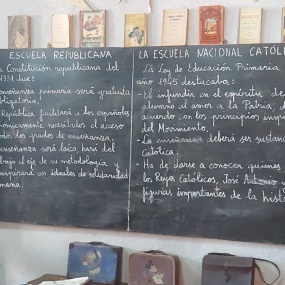 ESCUELA REPUBLICANA
Constitución republicana del
1931 dice:
enseñanza primaria será gratuita
obligatoria!
República facilitará a los españoles
económicamente necesitados el acceso
todos los grados de enseñanza.
enseñanza será laica, hará del
trabajo el eje de su metodología y
inspirará en ideales de solidaridad
humana.
LA ESCUELA NACIONAL CATÓLI
La Ley de Educación Primaria
año 1945 destacaba:
- El infundir en el espíritu de
alumno el amor a la Patria, d
acuerdo con los principios inspi
del Movimiento.
- La enseñanza deberá ser sustanc
Católica.
- Ha de darse a conocer quienes
los Reyes Católicos, José Antonio y
figuras importantes de la histo